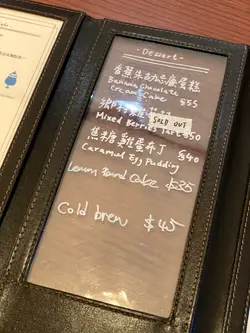 - Dessert -
香蕉朱古力忌廉蛋糕
Banana Chocolate
Cream Cake $55
SOLD OUT
Mixed Berries Tart $50
焦糖雞蛋布丁
Caramel Egg Pudding $40
Lemon Pound Cake $35
Cold brew $45